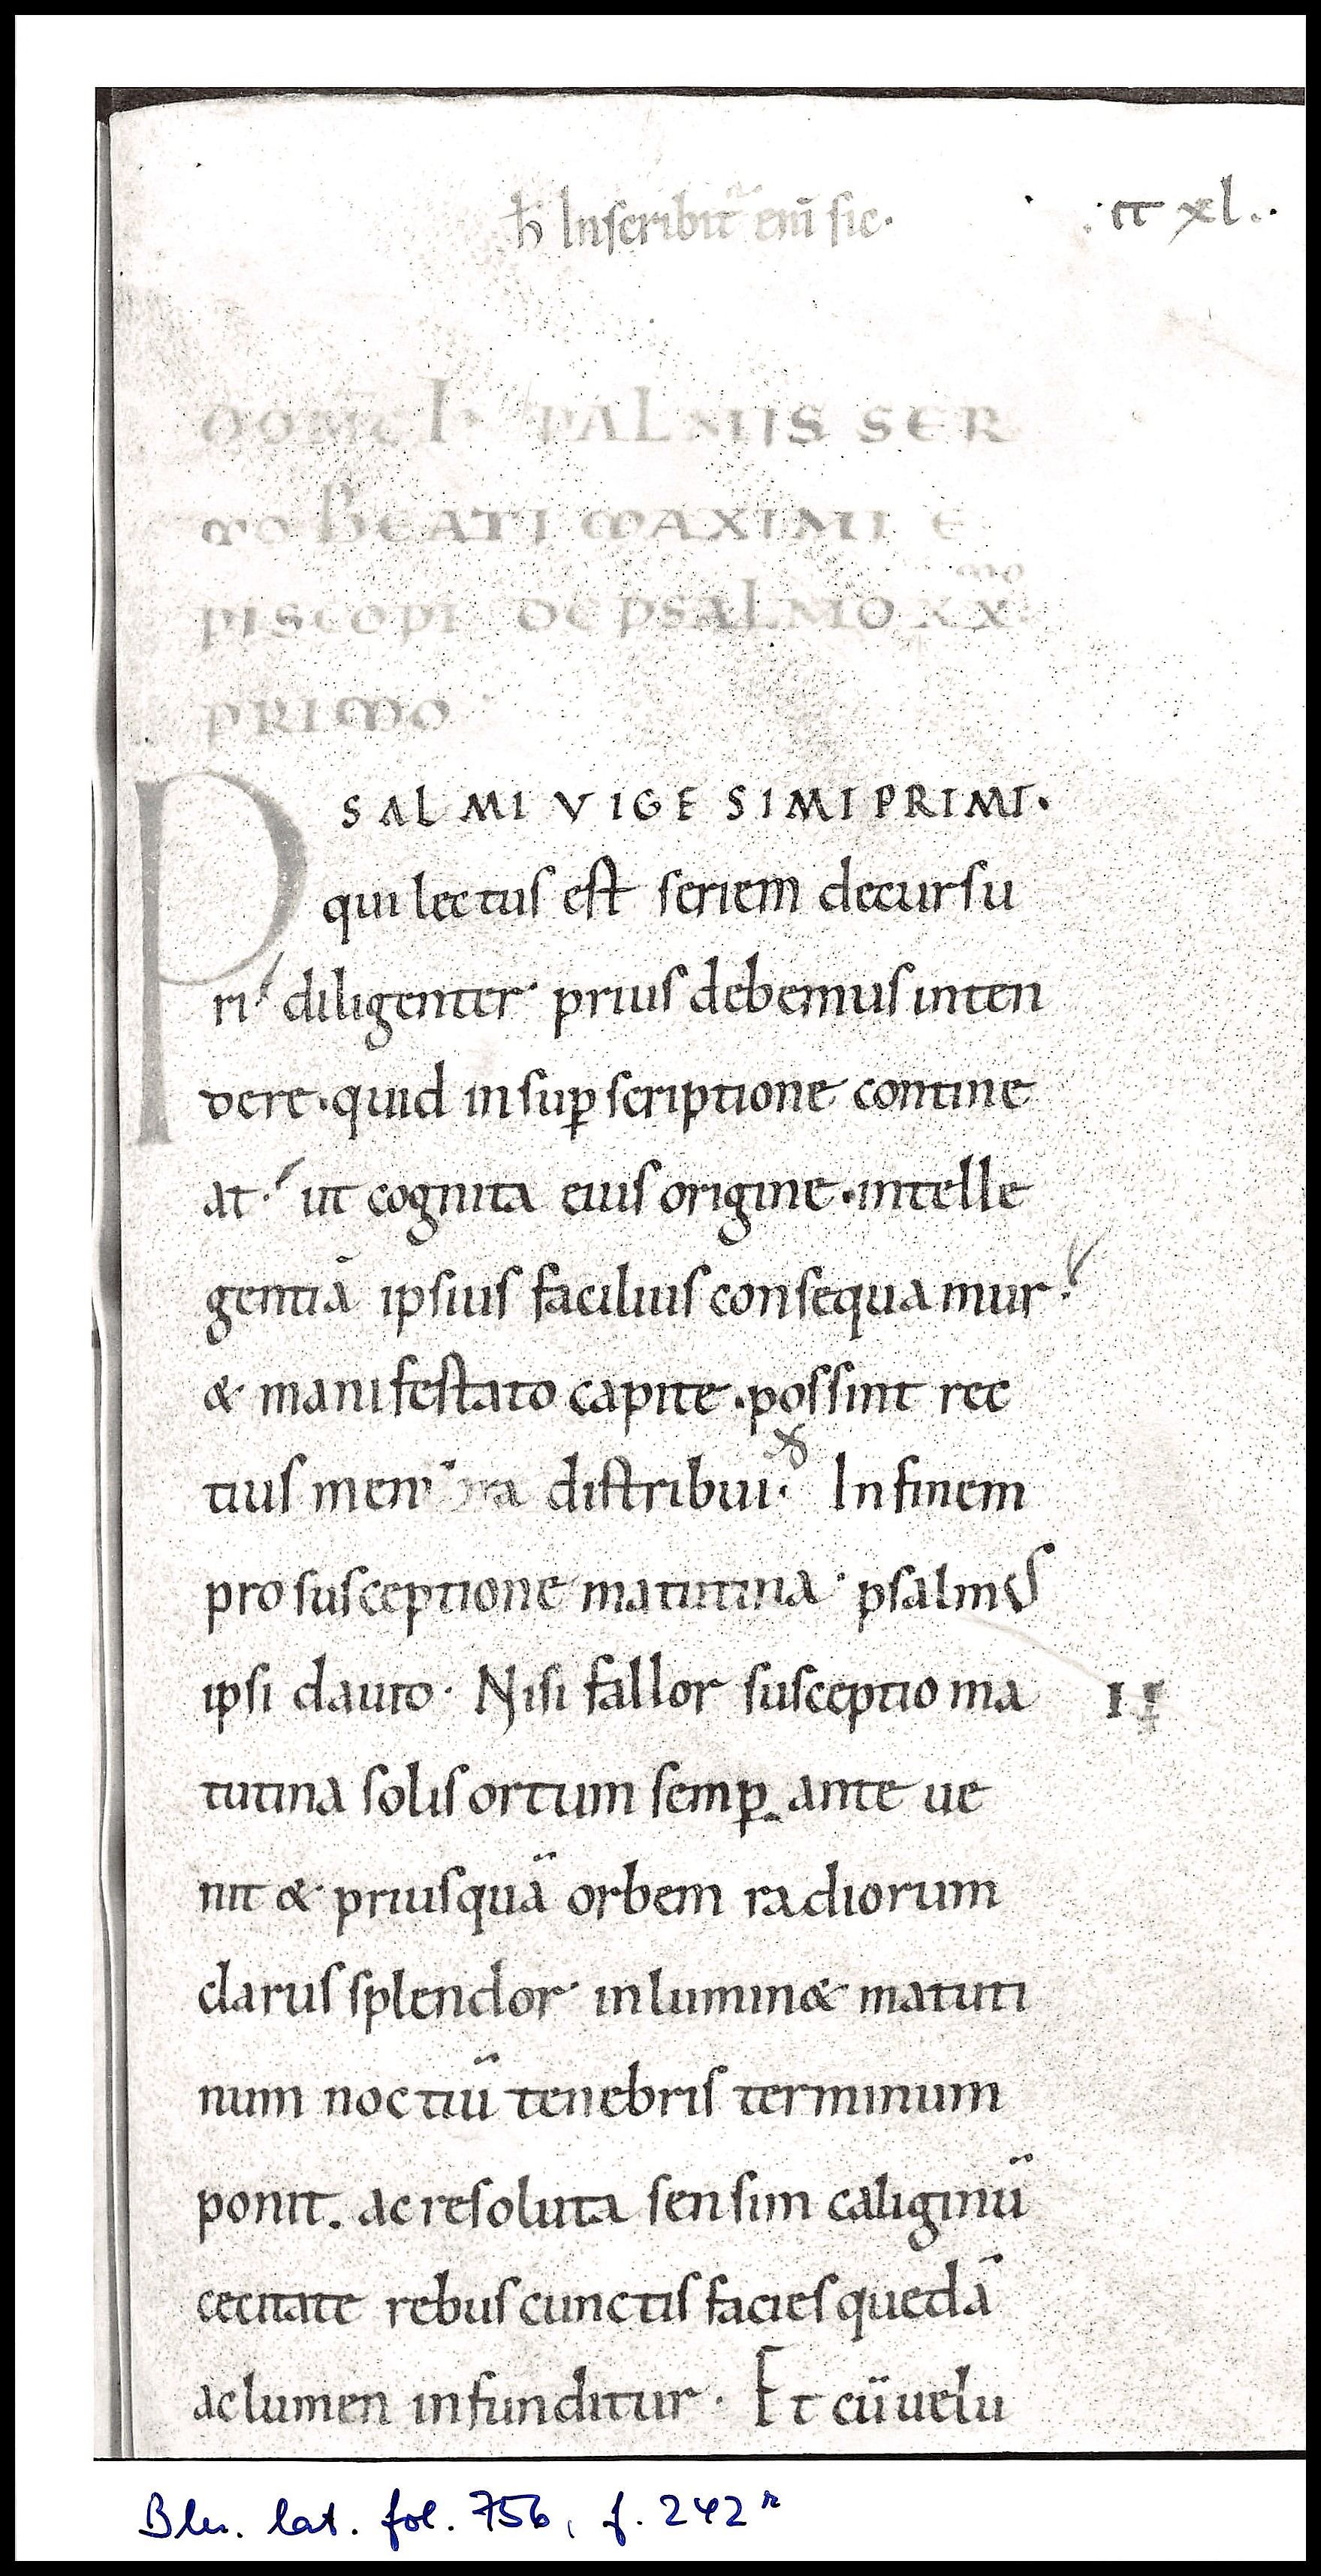 ħ Inscribit̄ eni̅ sic.
.ct xl..
DOM̅C I̅N PALMIS SER
MO BEATI MAXIMI E
PISCOPI DE PSALMO XXmo
PRIMO
PSALMI VIGESIMI PRIMI.
qui lectus est seriem decursu
ri diligenter prius debemus inten
dere. quid in sup̲scriptione contine
at. ut cognita eius origine. intelle
gentia̅ ipsius facilius consequamur.
& manifestato capite. possint rec
tius mem̅bra distribui. In finem
pro susceptione matutina. psalmus
ipsi dauid. Nisi fallor susceptio ma
II
tutina solis ortum semp̲. ante ue
nit & priusqua̅ orbem radiorum
clarus splendor inlumin& matuti
num noctiu̅ tenebris terminum
ponit. ac resoluta sensim caliginu̅
cecitate rebus cunctis facies queda̅
ac lumen infunditur. Et cu̅ uelu
Bln. lat. fol. 756, f. 242r